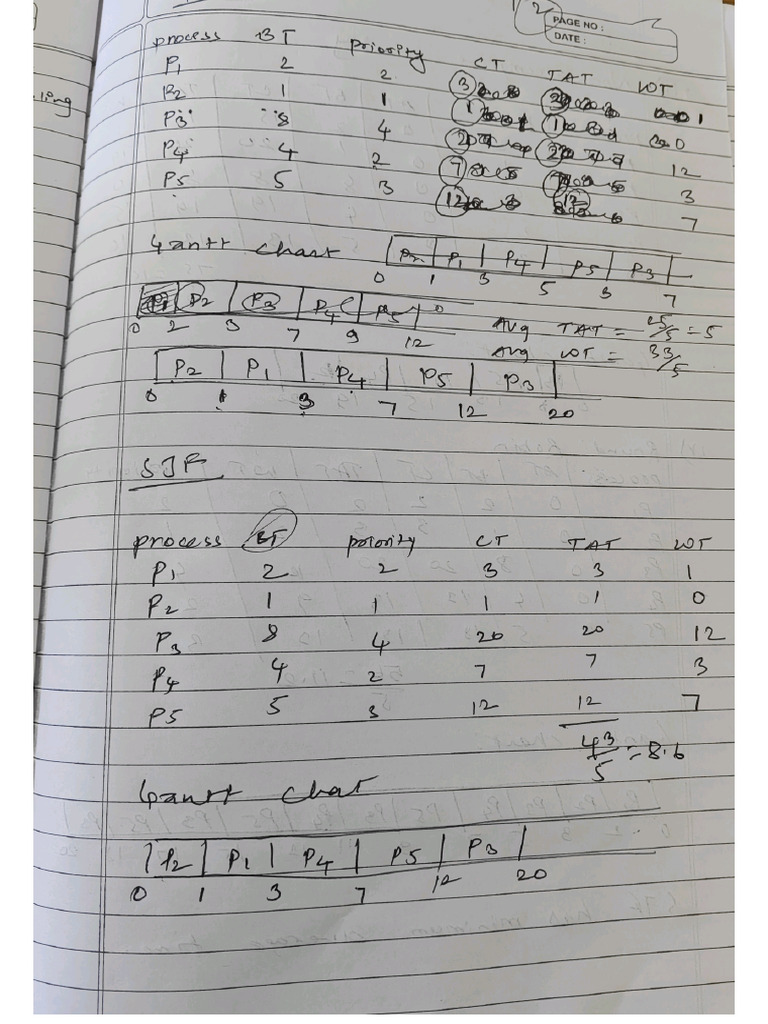 PAGE NO :
DATE :
process BT priority CT TAT WT
P1 2 2 3 1
P2 1 1 1 1 0
P3 8 4 20 20 12
P4 4 2 7 3
P5 5 3 12 12 7
ling
Gantt chart P2 P1 P4 P5 P3
0 1 3 5 3 7
P1 P2 P3 P4 P5
0 2 3 7 9 12
Avg TAT = 25/5 = 5
Avg WT = 33/5
P2 P1 P4 P5 P3
0 1 3 7 12 20
SJF
process BT priority CT TAT WT
P1 2 2 3 3 1
P2 1 1 1 1 0
P3 8 4 20 20 12
P4 4 2 7 7 3
P5 5 3 12 12 7
43/5 = 8.6
Gantt chat
P2 P1 P4 P5 P3
0 1 3 7 12 20